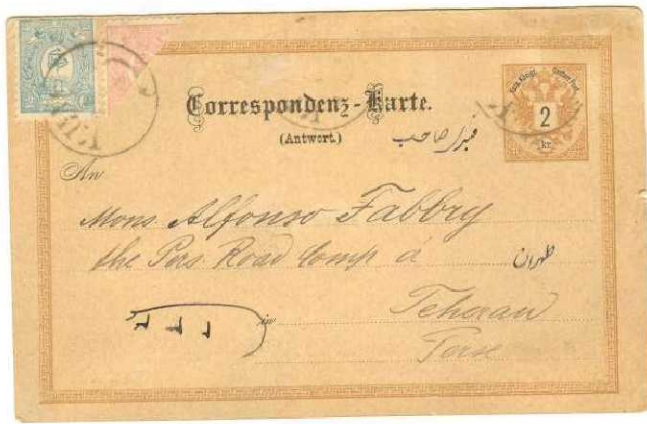 Correspondenz-Karte.
(Antwort.)
صاحب
2
kr.
An
Mons. Alfonso Fabbry
the Pers. Road Comp à
طهران
in Teheran
Perse